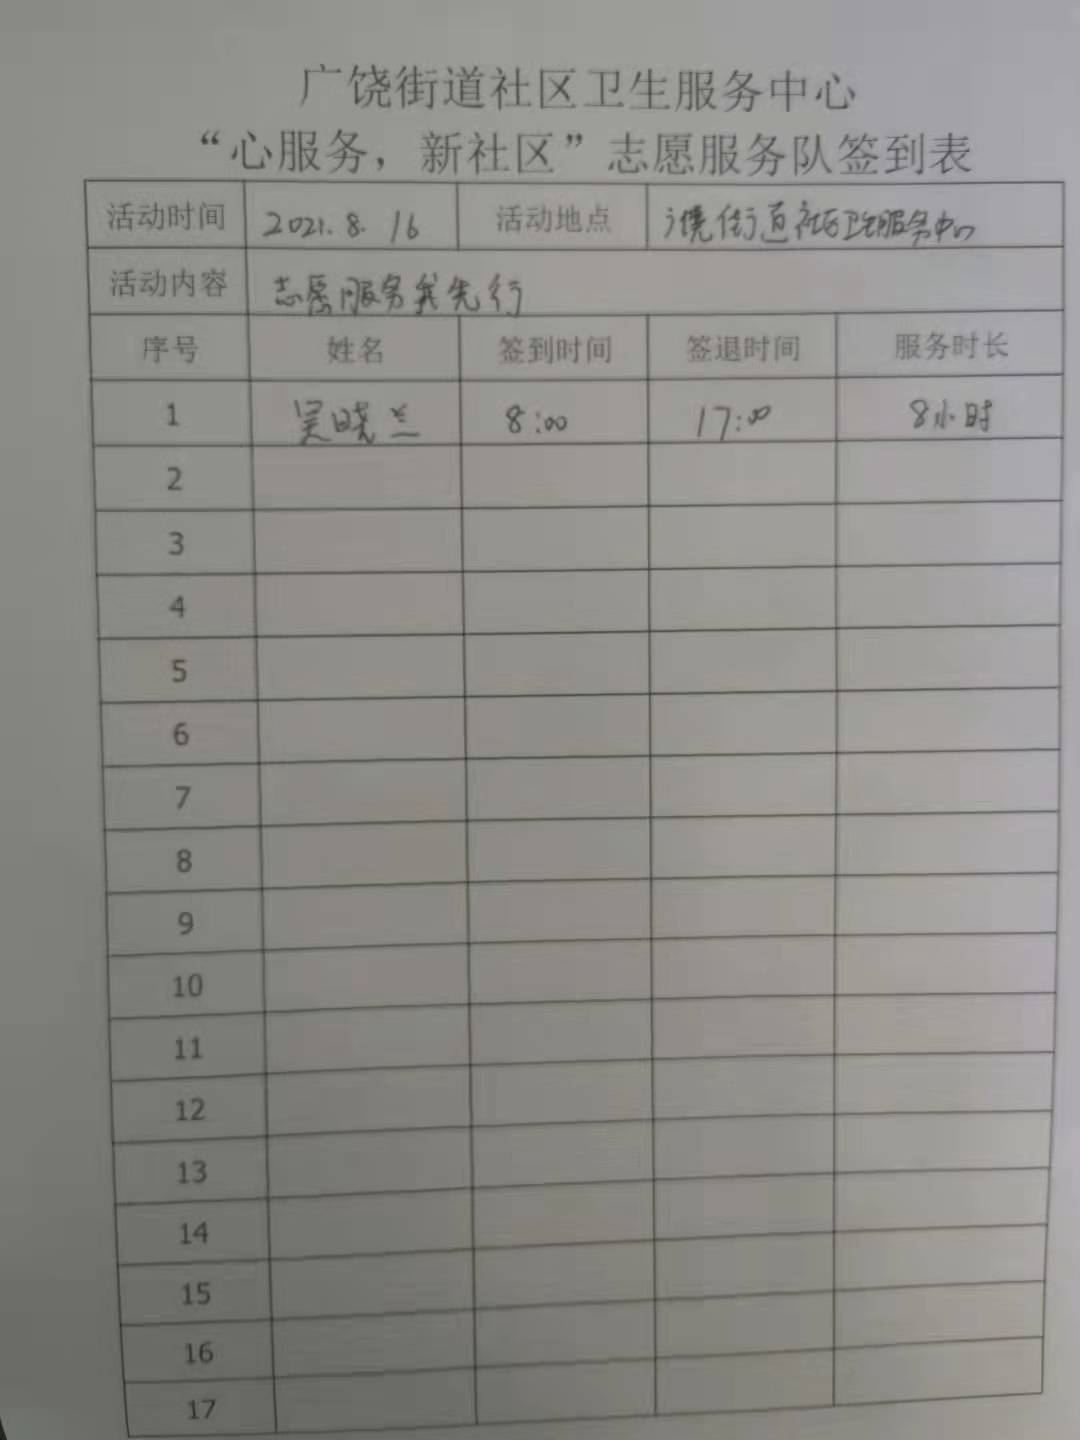 广饶街道社区卫生服务中心
“心服务，新社区”志愿服务队签到表
活动时间 2021.8.16 活动地点 广饶街道社区卫生服务中心
活动内容 志愿服务我先行
序号 姓名 签到时间 签退时间 服务时长
1 吴晓兰 8:00 17:00 8小时
2
3
4
5
6
7
8
9
10
11
12
13
14
15
16
17